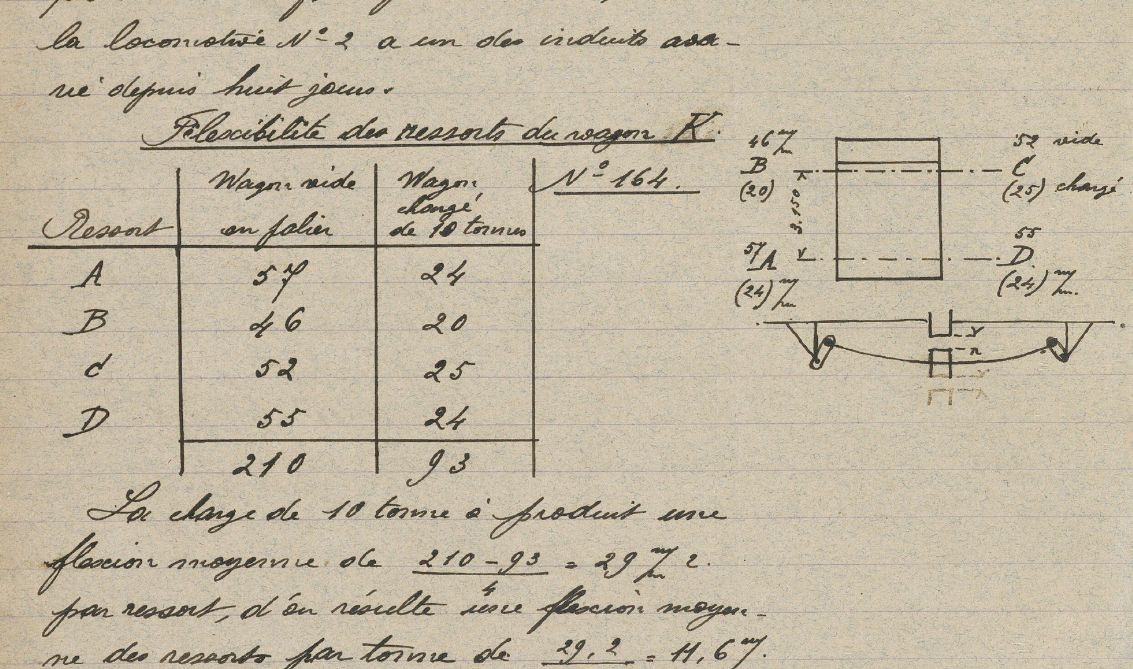 la locomotive N° 2 a un des induits ava-
rié depuis huit jours.
Flexibilité des ressorts du wagon K.
N° 164.
Ressort | Wagon vide en palier | Wagon chargé de 10 tonnes
A 57 24
B 46 20
C 52 25
D 55 24
210 93
46 m/m
B
(20)
52 vide
C
(25) chargé
3.150
57
A
(24) m/m
55
D
(24) m/m
La charge de 10 tonne à produit une
flexion moyenne de 210 - 93 / 4 = 29 m/m 2.
par ressort, d'ou résulte une flexion moyen-
ne des ressorts par tonne de 29,2 = 11,6 m/